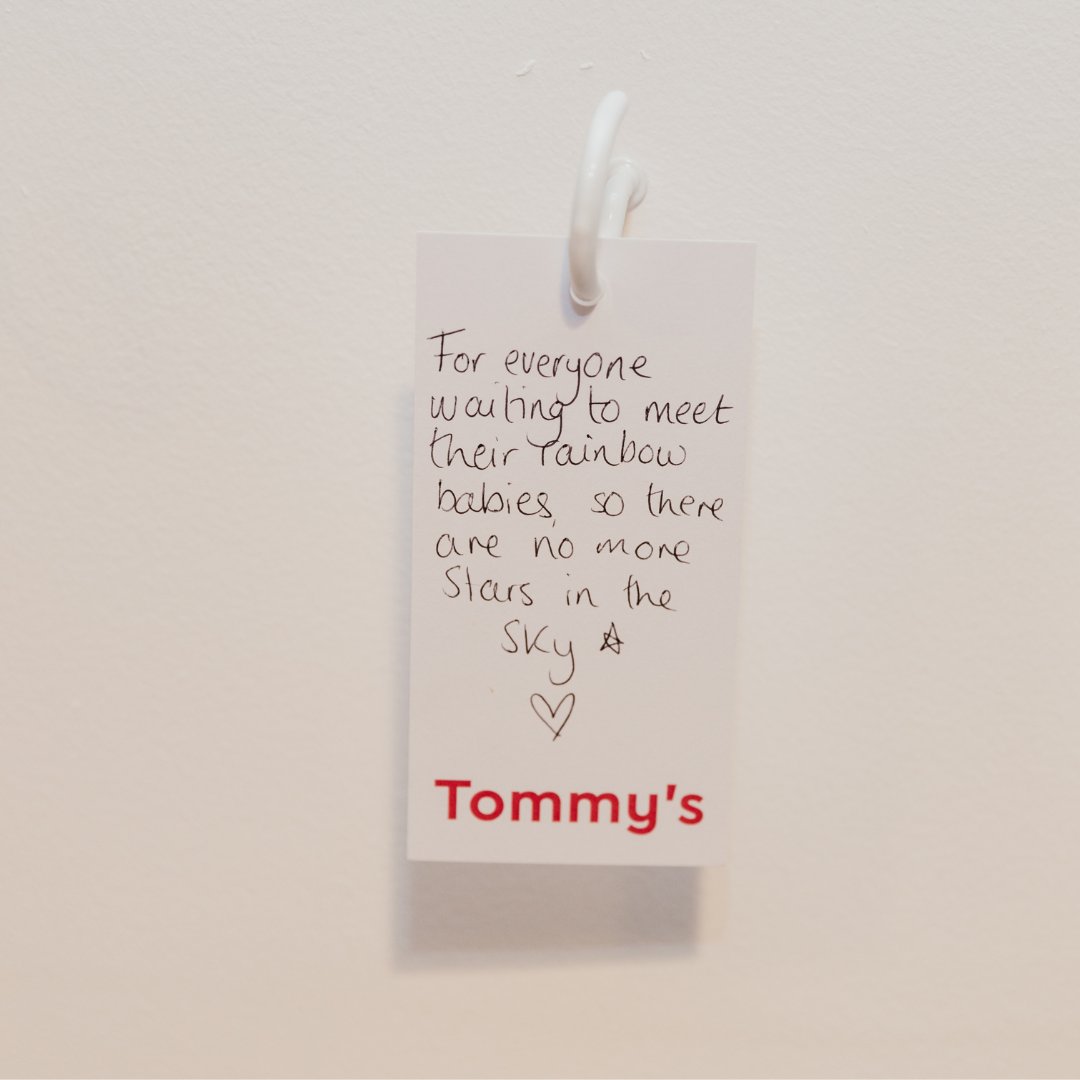 For everyone
waiting to meet
their rainbow
babies, so there
are no more
Stars in the
Sky
Tommy's